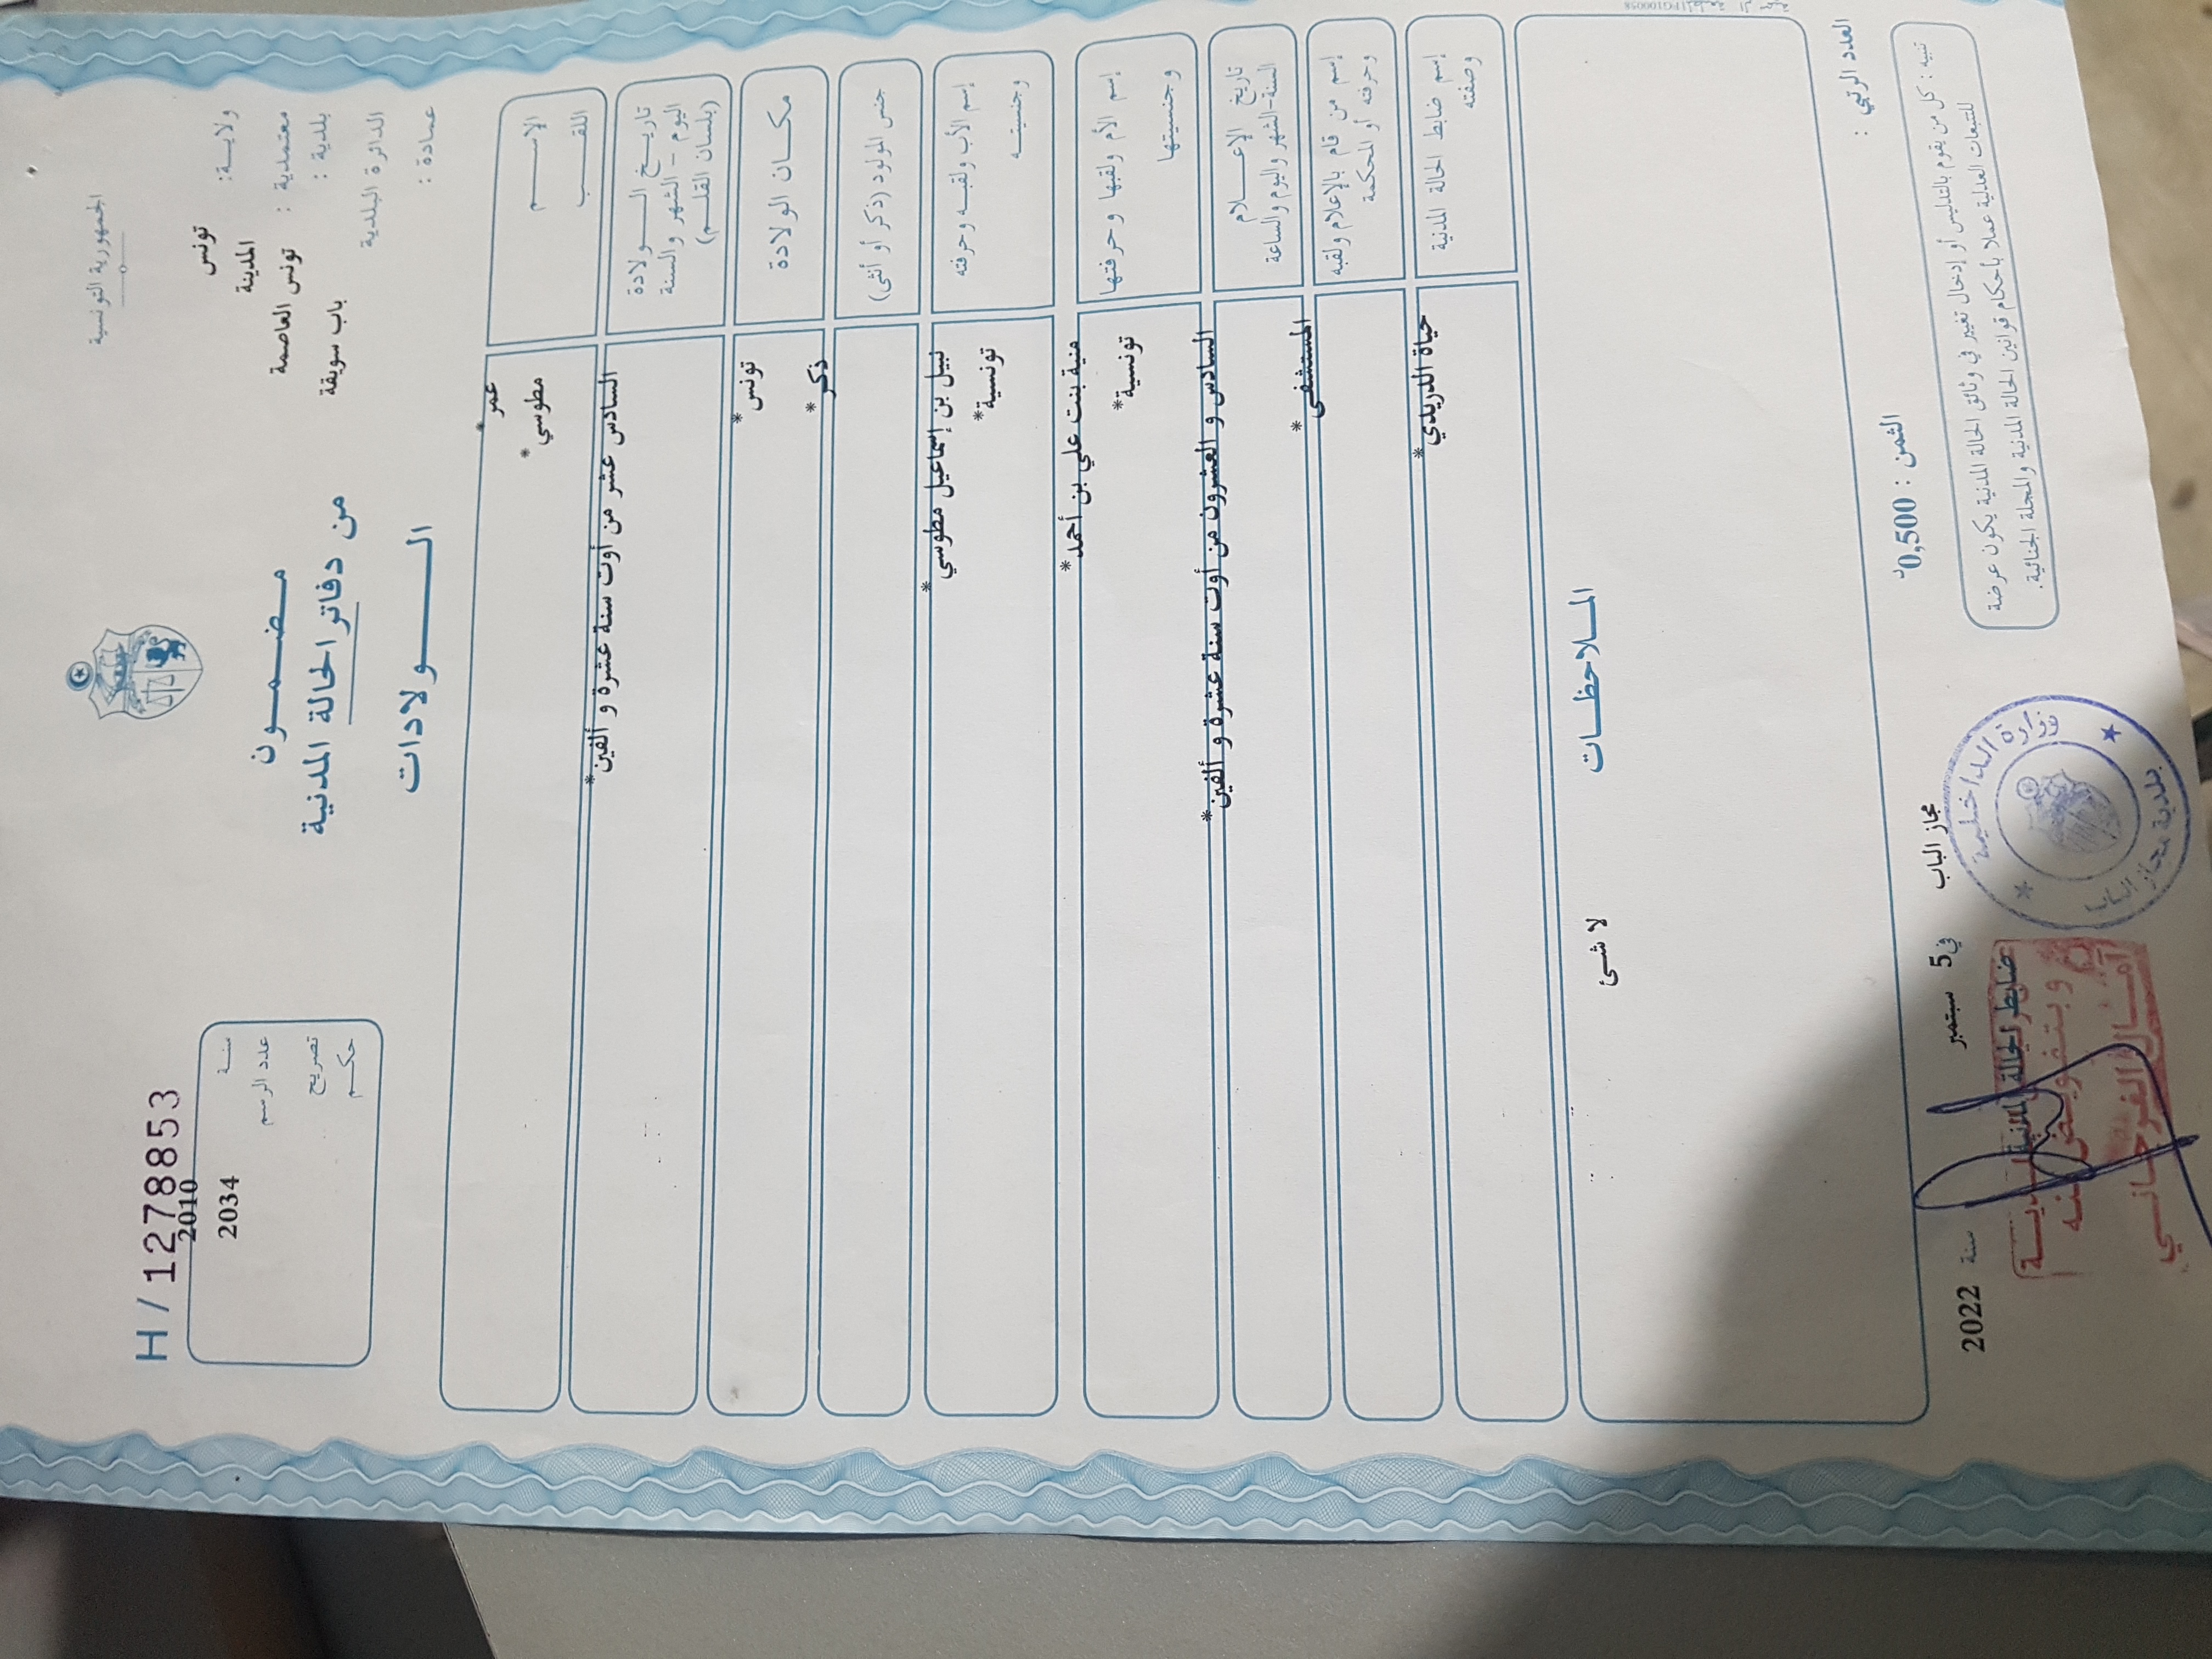 الجمهورية التونسية
H / 12788853
ولاية: تونس
المدينة
معتمدية :
بلدية : تونس العاصمة
الدائرة البلدية باب سويقة
عمادة :
مضمون
من دفاتر الحالة المدنية
الولادات
سنة 2010
عدد الرسم 2034
تصريح
حكم
الاسم *عمر
اللقب *مطوسي
تاريخ الولادة
اليوم - الشهر والسنة
(بلسان القلم)
السادس عشر من أوت سنة عشرة و ألفين*
مكان الولادة
*تونس
جنس المولود (ذكر أو أنثى)
*ذكر
إسم الأب ولقبه وحرفته
نبيل بن إسماعيل مطوسي*
وجنسيته
تونسية*
إسم الأم ولقبها وحرفتها
منية بنت علي بن أحمد*
وجنسيتها
تونسية*
تاريخ الإعلام
السنة-الشهر واليوم والساعة
السادس و العشرون من أوت سنة عشرة و ألفين*
إسم من قام بالإعلام ولقبه
وحرفته أو المحكمة
المستشفى*
إسم ضابط الحالة المدنية
وصفته
حياة الدريدي*
الملاحظات
لا شئ
العدد الرتبي :
الثمن : 0,500د
مجاز الباب في 5 سبتمبر سنة 2022
ضابط الحالة المدنية
تنبيه : كل من يقوم بالتدليس أو إدخال تغيير في وثائق الحالة المدنية يكون عرضة
للتتبعات العدلية عملا بأحكام قوانين الحالة المدنية والمجلة الجنائية.
وزارة الداخلية
بلدية مجاز الباب
وبتفويض منه
آمال الفرجاني